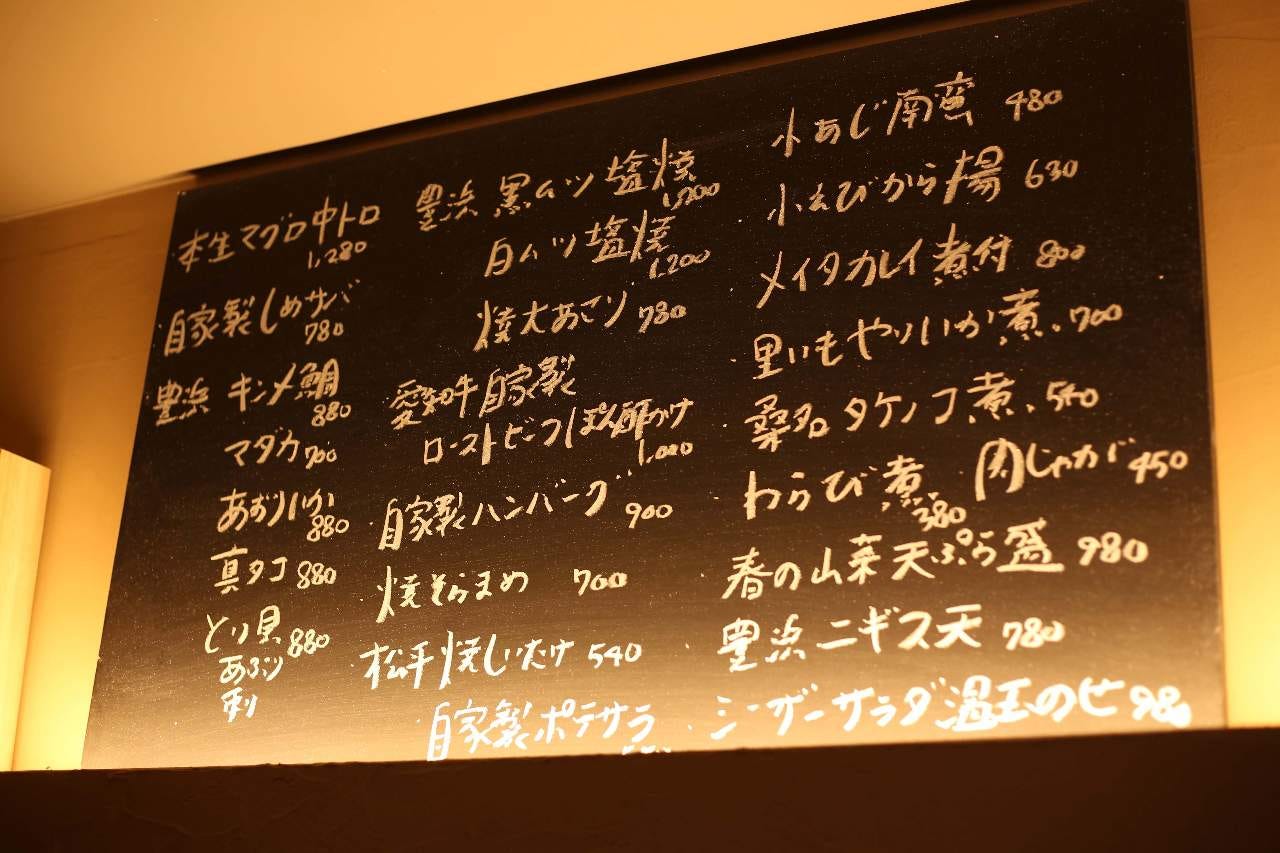 本生マグロ中トロ
1,280
自家製しめサバ
780
豊浜 キンメ鯛
880
マダカ 700
あおりいか
880
真タコ 880
とり貝
880
あぶり
刺
豊浜 黒ムツ塩焼
1,200
白ムツ塩焼
1,200
焼大あさり 780
愛知牛自家製
ローストビーフぽん酢がけ
1,000
自家製ハンバーグ 900
焼そらまめ 700
松平焼しいたけ 540
自家製ポテサラ
・小あじ南蛮 480
・小えびから揚 630
・メイタカレイ煮付 800
・里いもやりいか煮 700
・桑名タケノコ煮 540
・わらび煮
380
肉じゃが 450
・春の山菜天ぷら盛 980
・豊浜ニギス天 780
・シーザーサラダ温玉のせ 980